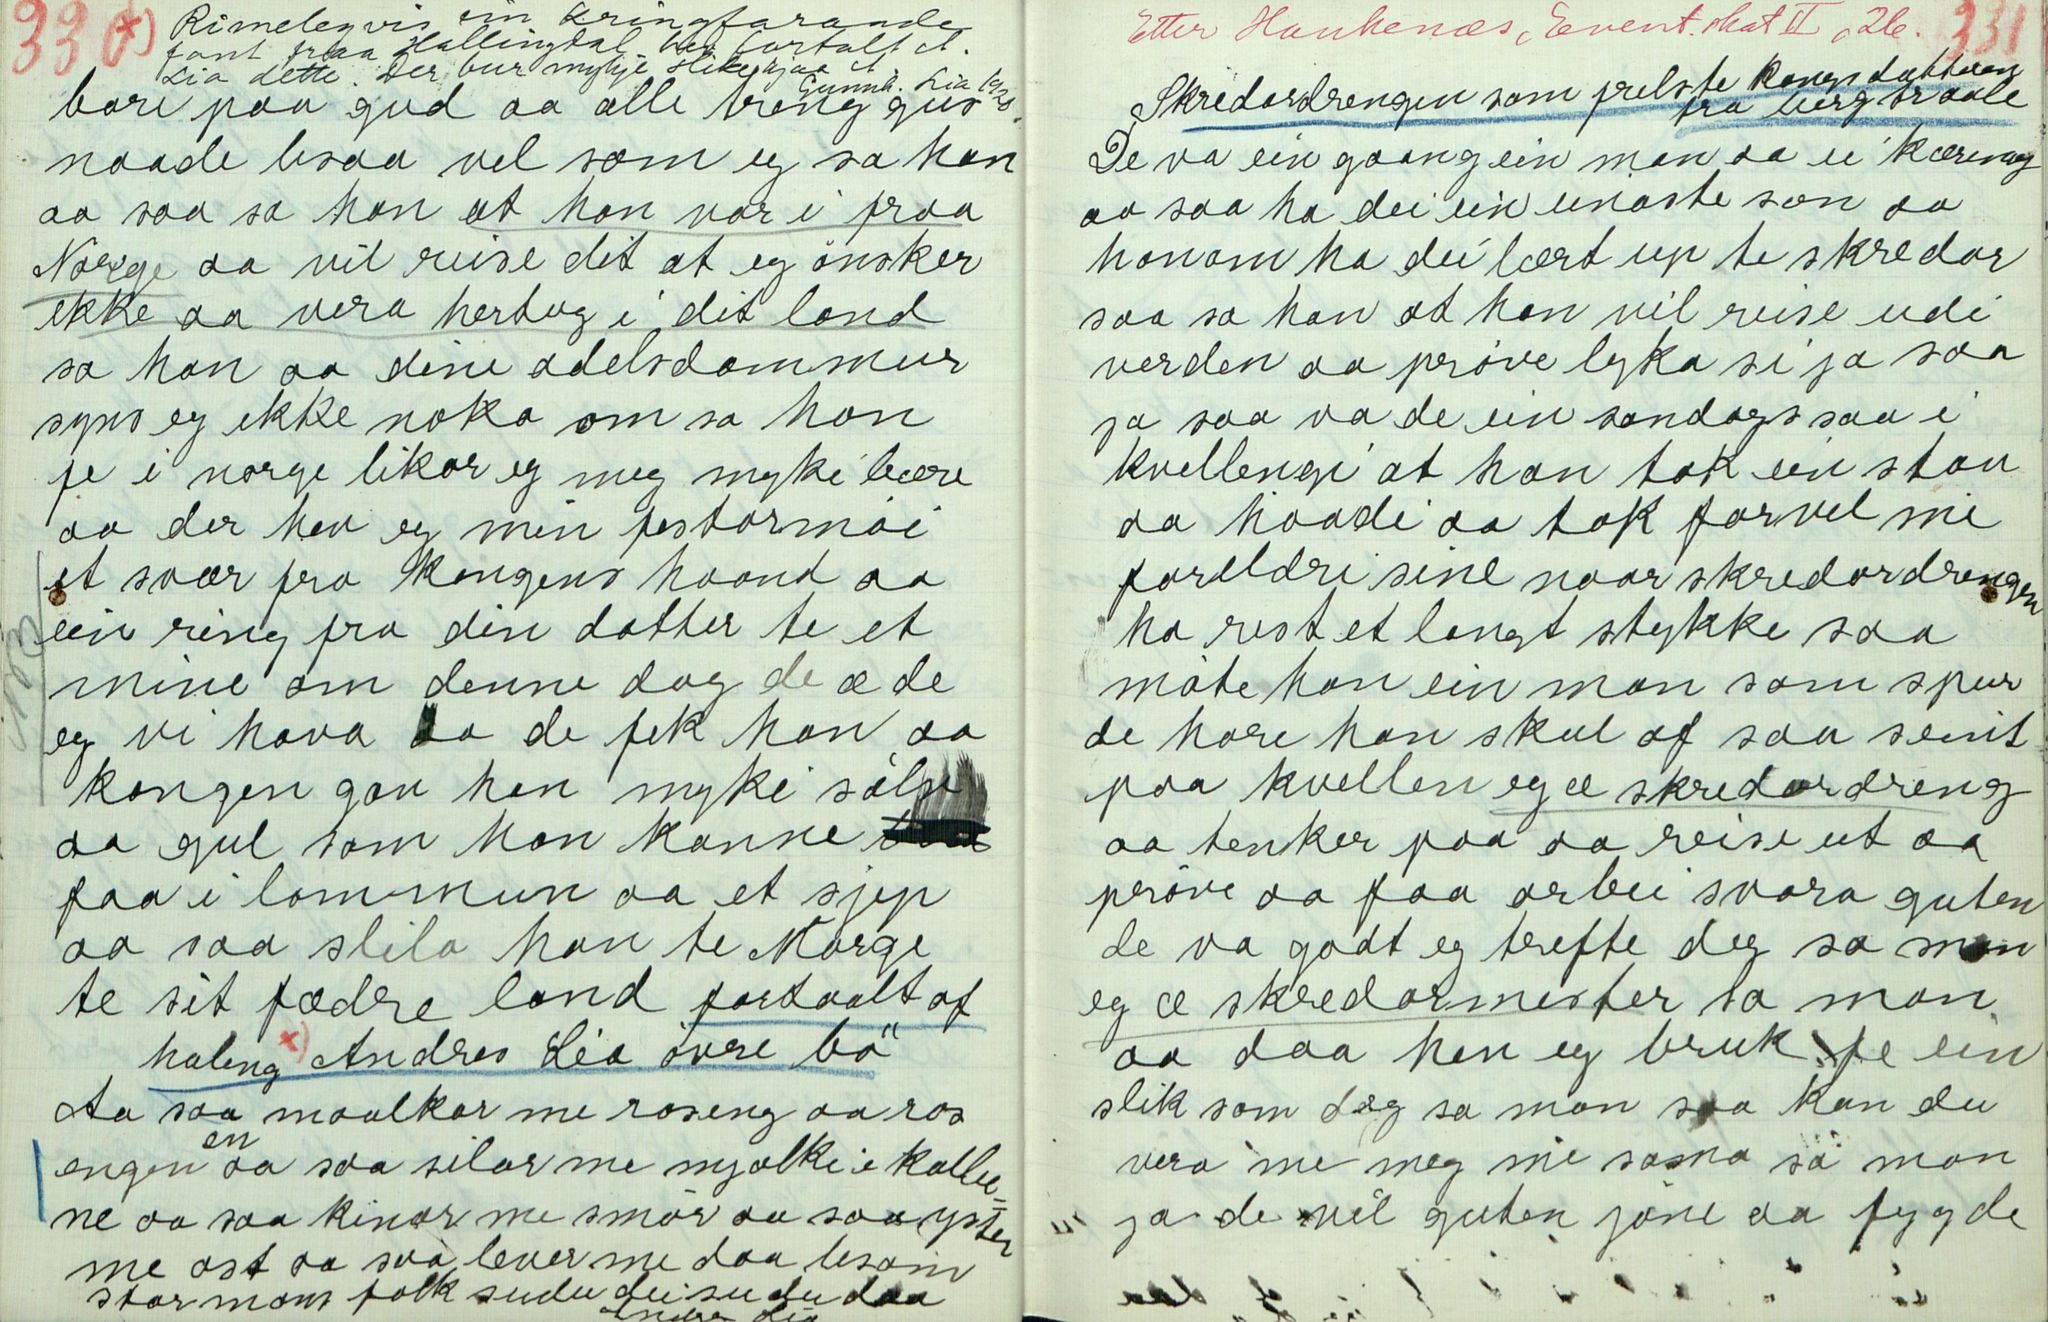 330 x) Rimelegvis ein kringfarande
fant fraa Hallingdal hev fortalt A.
Lia dette. Der bur mykje slike hjaa A.
Gunnh. Lia 1920.
bare paa gud aa alle treng gus
naade besaa vel som eg sa han
aa saa sa han at han var i fraa
Norge aa vil reise dit at eg ønsker
ekke aa vera hertug i dit land
sa han aa dine adelsdammur
syns eg ekke noka om sa han
fe i norge likar eg meg myki bære
aa der hev eg min festarmøi
et svær fra Kongens haand aa
ein ring fra din datter te et
mine om denne dag de æ de
eg vi hava aa de fek han aa
kongen gav han myki sølv
aa gul som han kanne
faa i lommun aa et sjep
aa saa stila han te Norge
te sit fædre land fortaalt af
haling x) Andres Lia øvre bø
Aa saa maalkar me roseng aa ros
engen en aa saa silar me myalki i kollu-
ne aa saa kinar me smør aa saa yster
me ost aa saa lever me daa besom
starmans folk sudu dei sudu daa
Andres Lia
Etter Haukenæs, Event. skat II, 26. 331
Skredardrengen som frelste Kongsdatteren
fra bergtraale
De va ein gaang ein man aa ei kæreng
aa saa ha dei ein einaste søn aa
honom ha dei lært up te skredar
saa sa han at han vil reise udi
verden aa prøve lyka si ja saa
ja saa va de ein søndags saa i
kvellengi at han tok ein stav
aa haadi aa tok farvel mi
foreldri sine naar skredardrengen
ha rest et langt stykke saa
møte han ein man som spur
de hore han skul af saa seint
paa kvellen eg æ skredardreng
aa tenker paa aa reise ut aa
prøve aa faa arbei svara guten
de va godt eg trefte deg sa man
eg æ skredarmester sa man
aa daa han eg bruk fe ein
slik som deg sa man saa kan du
vera me meg mi sama sa man
" ja de vil guten jøre aa fygde